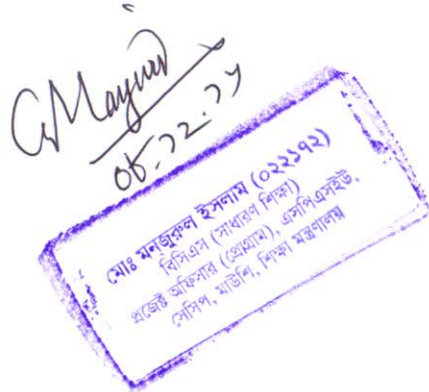 মোঃ মনজুরুল ইসলাম (০২২১৭২)
বিসিএস (সাধারণ শিক্ষা)
প্রজেক্ট অফিসার (প্রোগ্রাম), এসপিএসইউ,
সেসিপ, মাউশি, শিক্ষা মন্ত্রণালয়